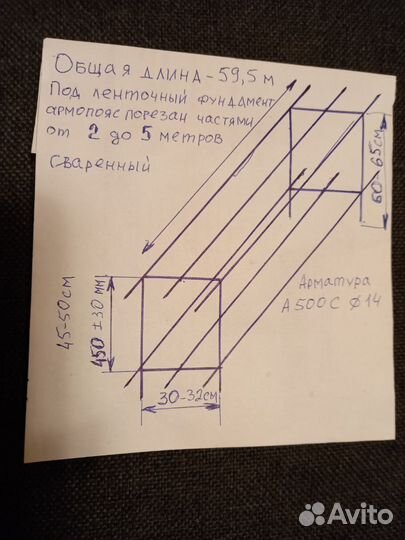 Общая длина - 59,5 м
Под ленточный фундамент
армопояс порезан частями
от 2 до 5 метров
сваренный
60-65см
Арматура
А500С Ø14
45-50см
450 ± 30 мм
30-32см
Avito